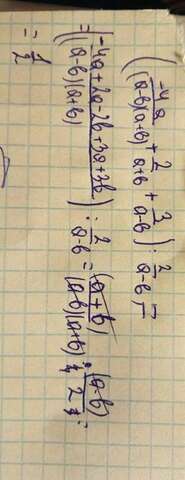 (-4a/((a-b)(a+b)) + 2/(a+b) + 3/(a-b)) : 2/(a-b) =
= ((-4a+2a-2b+3a+3b)/((a-b)(a+b))) : 2/(a-b) = (a+b)/((a-b)(a+b)) · (a-b)/2 =
= 1/2